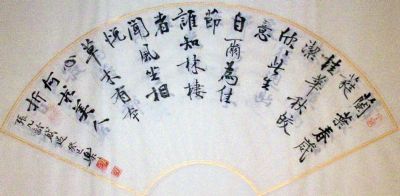 蘭葉春葳
蕤
桂華秋皎
潔
欣々此生
意
自爾為佳
節
誰知林棲
者
聞風坐相
悅
草木有本
心
何求美人
折
張九齡感遇 癸巳